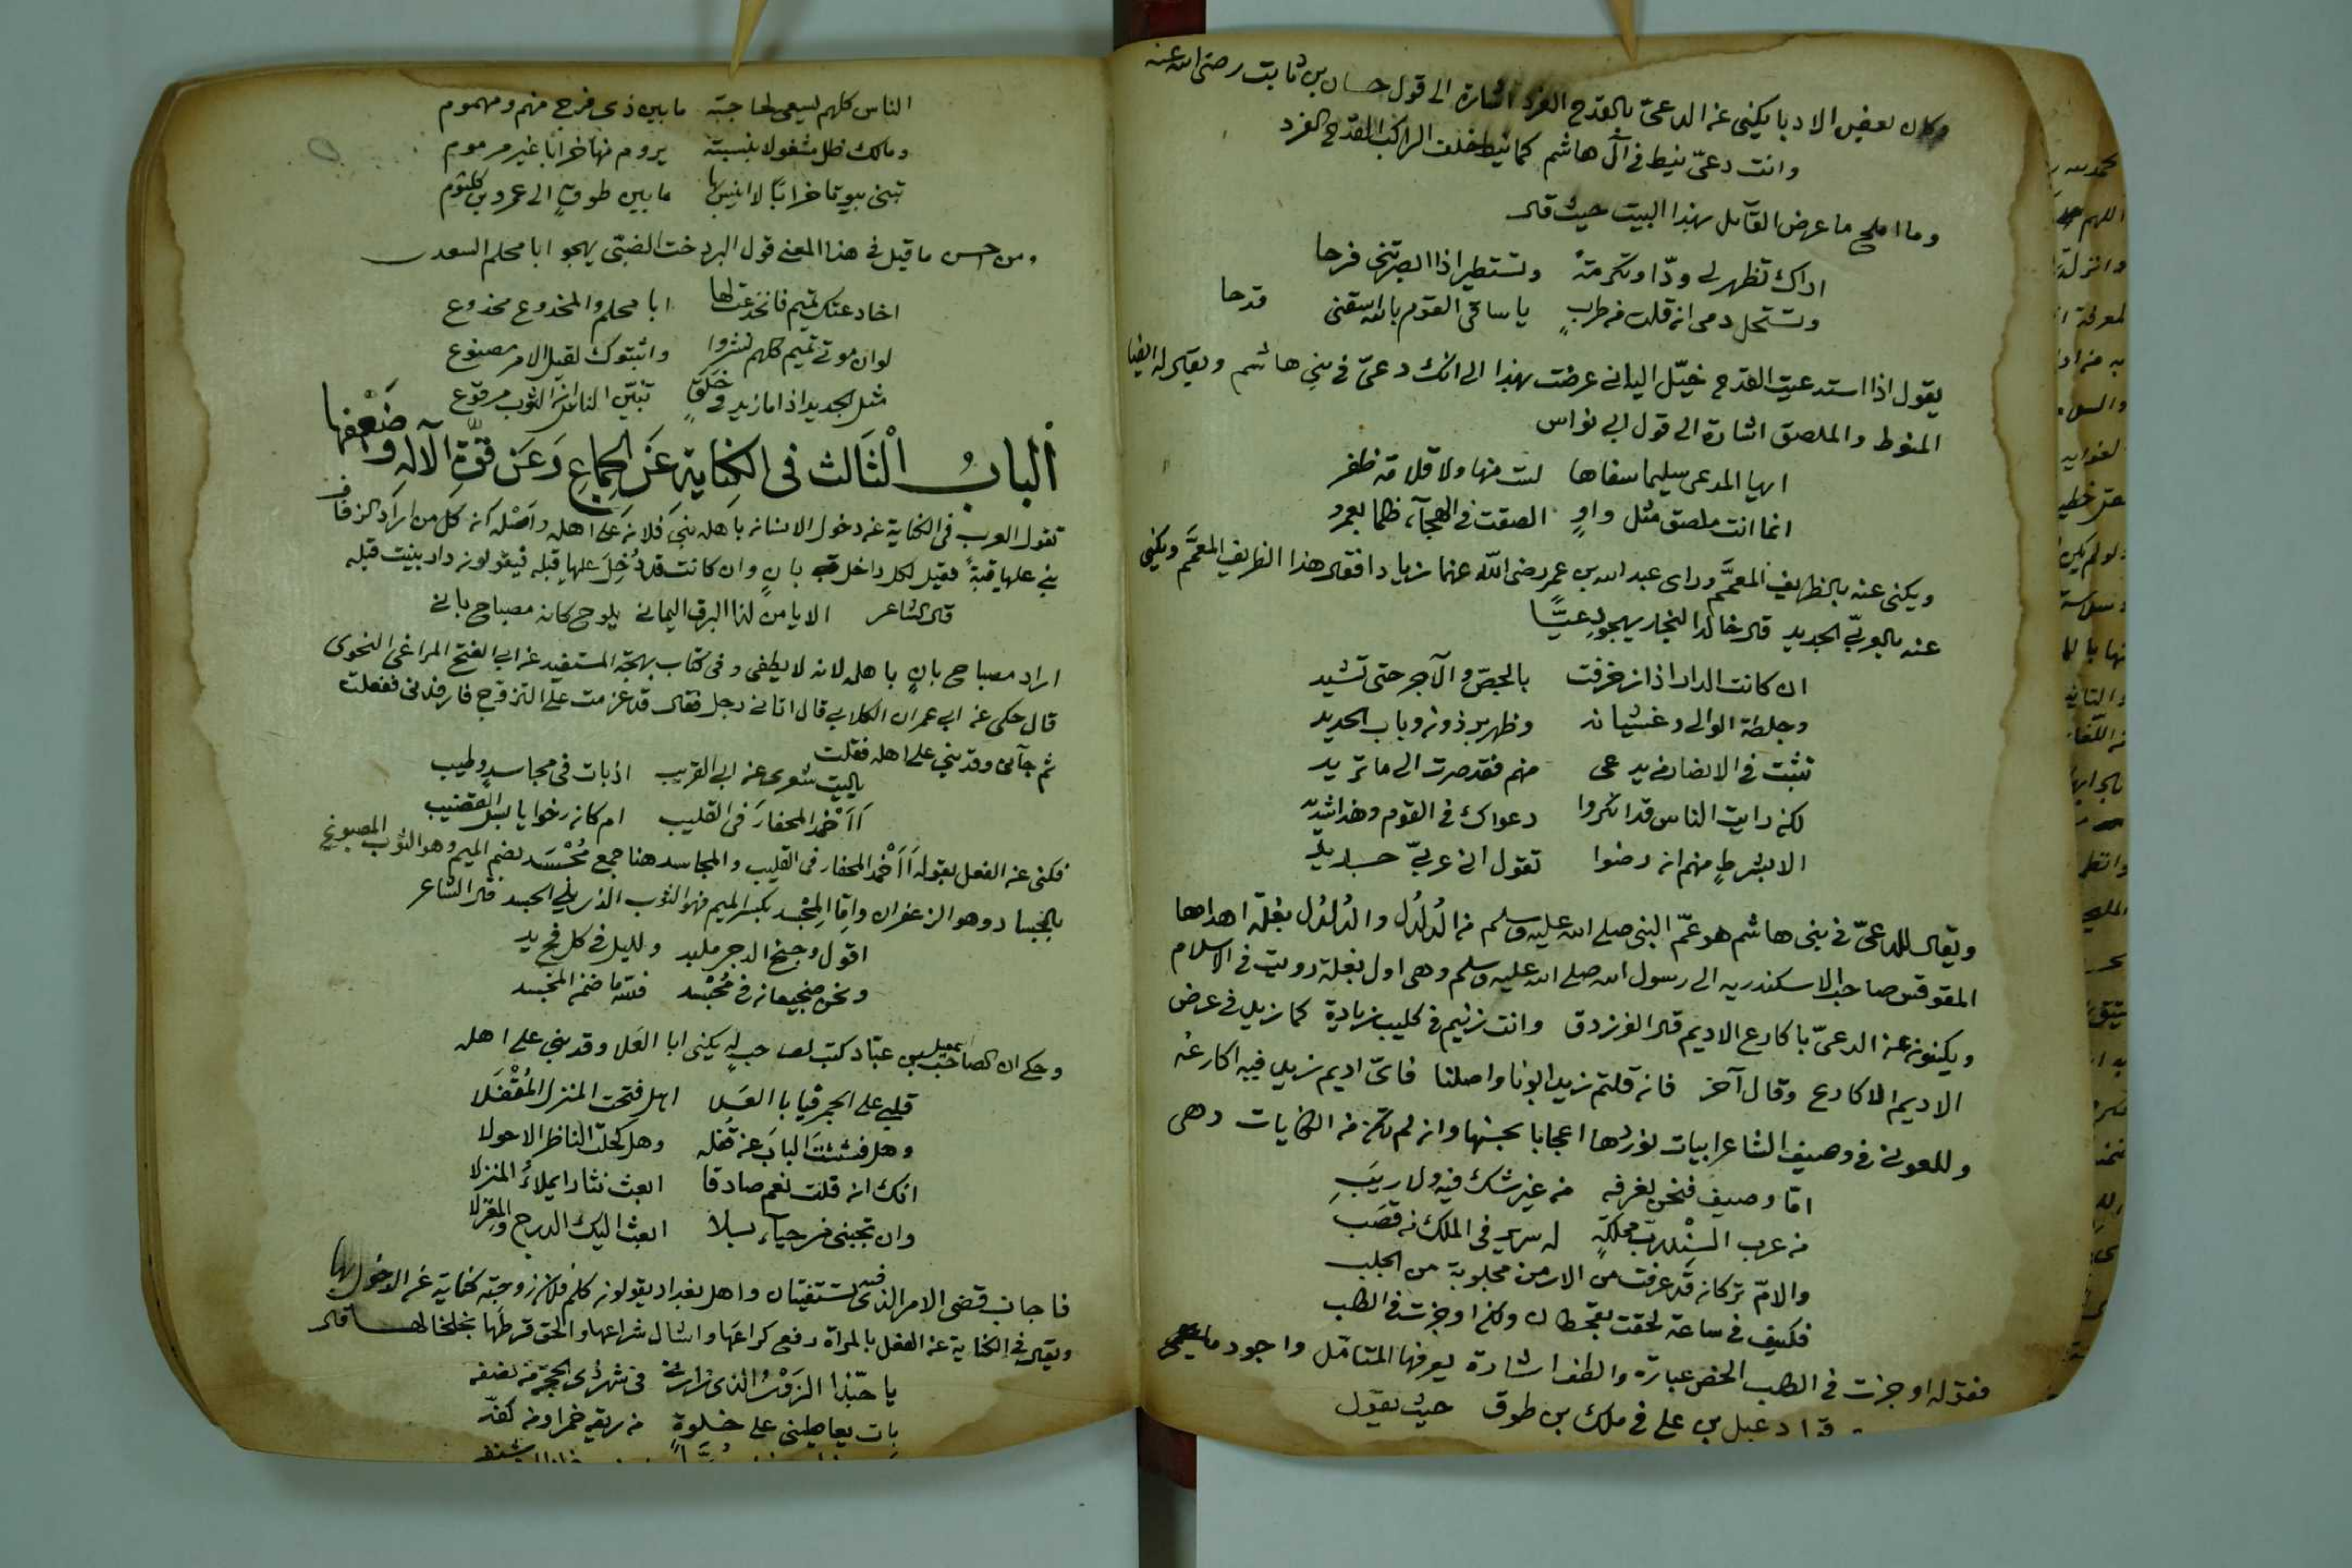 وكان بعض الادبا يكنى عن الدعىّ بالقدح الفرد اشارة الى قول حسان بن ثابت رضى الله عنه
وانت دعىّ نيط فى آل هاشم كما نيط خلف الراكب القدح الفرد
وما املح ما عرض القآئل بهذا البيت حيث قال
اراك تظهر لى ودّا وتكرمة وتستطير اذا ابصرتنى فرحا
وتستحل دمى ان قلت من طرب يا ساقى القوم بالله اسقنى قدحا
يقول اذا استدعيت القدح خيّل اليك انى عرضت بهذا الى انك دعىّ فى بنى هاشم ويقال له ايضا
المنوط والملصق اشارة الى قول ابى نواس
ايها المدعى سليما سفاها لست منها ولا قلامة ظفر
انما انت ملصق مثل واو الصقت فى الهجآء ظلما بعمرو
ويكنى عنه بالظريف المعمّم وراى عبد الله بن عمر رضى الله عنهما زيادا فقال هذا الظريف المعمّم ويكنى
عنه بالعربىّ الجديد قال خالد النجار يهجو دعيّا
ان كانت الدار اذا زخرفت بالجصّ والآجر حتى تشيد
وجلطة الوالى وغشيانه وظهر برذون وباب الحديد
تثبت فى الانصار من يدعى منهم فقد صرت الى ما تريد
لكن رايت الناس قد انكروا دعواك فى القوم وهذا شديد
الا بشرط منهم ان رضوا تقول انى عربىّ جديد
ويقال للدعىّ فى بنى هاشم هو عمّ النبى صلى الله عليه وسلم من الدُلدُل والدُلدُل بغلة اهداها
المقوقس صاحب الاسكندريه الى رسول الله صلى الله عليه وسلم وهى اول بغلة رويت فى الاسلام
ويكنون عن الدعىّ باكارع الاديم قال الفرزدق وانت زنيم فى كليب زيادة كما زيد فى عرض
الاديم الاكارع وقال آخر فان قلتم زيد ابونا واصلنا فاىّ اديم زيد فيه اكارعه
وللعونى فى وصيف الشاعر ابيات نوردها اعجابا بحسنها وان لم تكن من الكنايات وهى
امّا وصيف فنحن نعرفه من غير شك فيه ولا ريب
من عرب السند رب مملكة له سرير فى الملك من قصب
والامّ تركانه قد عرفت من الارمن مجلوبة من الجلب
فكيف فى ساعة لحقت بقحطان ولكن اوجزت فى الطلب
فقوله اوجزت فى الطلب الخص عبارة والطف اشارة يعرفها المتامّل واجود ما
قال دعبل بن على فى ملك بن طوق حيث يقول
الناس كلهم يسعى لحاجته ما بين ذى فرح منهم ومهموم
ومالك ظل مشغولا بنسبته يروم منها خرابا غير مرموم
تبنى بيوتا خرابا لا انيس بها ما بين طوق الى عمرو بن كلثوم
ومن احسن ما قيل فى هذا المعنى قول البردخت الضبّى يهجو ابا محلم السعدى
اخادعتك تميم فانخدعت لها ابا محلم والمخدوع مخدوع
لو ان موتى تميم كلهم نشروا واثبتوك لقيل الامر مصنوع
مثل الجديد اذا ما زيد فى خَلَقٍ تبيّن الناس ان الثوب مرقوع
اَلبابُ اْلثَالث فى الكِنايةِ عَنِ الجِماعِ وَعَن قوّةِ الآلهِ وضَعْفها
تقول العرب فى الكناية عن دخول الانسان باهله بنى فلان على اهله واَصْله ان كل من اراد الزفاف
بنى عليها قبةً فقيل لكل داخل بانٍ وان كانت قد دُخِلَ عليها قبله فيقولون دار بنيت قبله
قال الشاعر الا يا من لذا البرق اليمانى يلوح كانه مصباح بانى
اراد مصباح بانٍ باهله لانه لا يطفى وفى كتاب بهجة المستفيد عن ابى الفتح المراغى النحوى
قال حكى عن ابى عمران الكلابى قال اتانى رجل فقال قد عزمت على التزوج فارفدنى ففعلت
ثم جآنى وقد بنى على اهله فقلت
يا ليت شعرى عن ابى القريب اذ بات فى مجاسد وطيب
اَاَخْمد المحفار فى القليب ام كان رخوا يابس القضيب
فكنى عن الفعل بقوله اَاَخْمد المحفار فى القليب والمجاسد هنا جمع مُجْسَد بضم الميم وهو الثوب المصبوغ
بالجساد وهو الزعفران وامّا المِجْسد بكسر الميم فهو الثوب الذى يلى الجسد قال الشاعر
اقول وجنح الدجى ملبد ولليل فى كل فج يد
ونحن ضجيعان فى مُجْسد فلله ما ضمه المجسد
وحكى ان الصاحب اسمعيل بن عبّاد كتب لصاحب له يكنى ابا العَلا وقد بنى على اهله
قلبى على الجمرة يا با العَلا اهل فتحت المنزل المُقْفَلا
وهل فششتَ البابَ عن قفله وهل كحلت الناظر الاحولا
انك ان قلت نعم صادقا ابعث نثارا يملاءُ المنزلا
وان تجبنى من حيآء بلا ابعث اليك الدرج والمغزلا
فاجاب قضى الامر الذى فيه تستفتيان واهل بغداد يقولون كلم فلان زوجته كناية عن الدخول بها
ويقال فى الكناية عن الفعل بالمراة رفع كراعها واشال شراعها والحق قرطها بخلخالها قال
يا حبّذا الزَوْرُ الذى زارنى فى شهر ذى الحجة من نصفه
بات يعاطينى على خلوةٍ من ريقه خمرا ومن كفّه